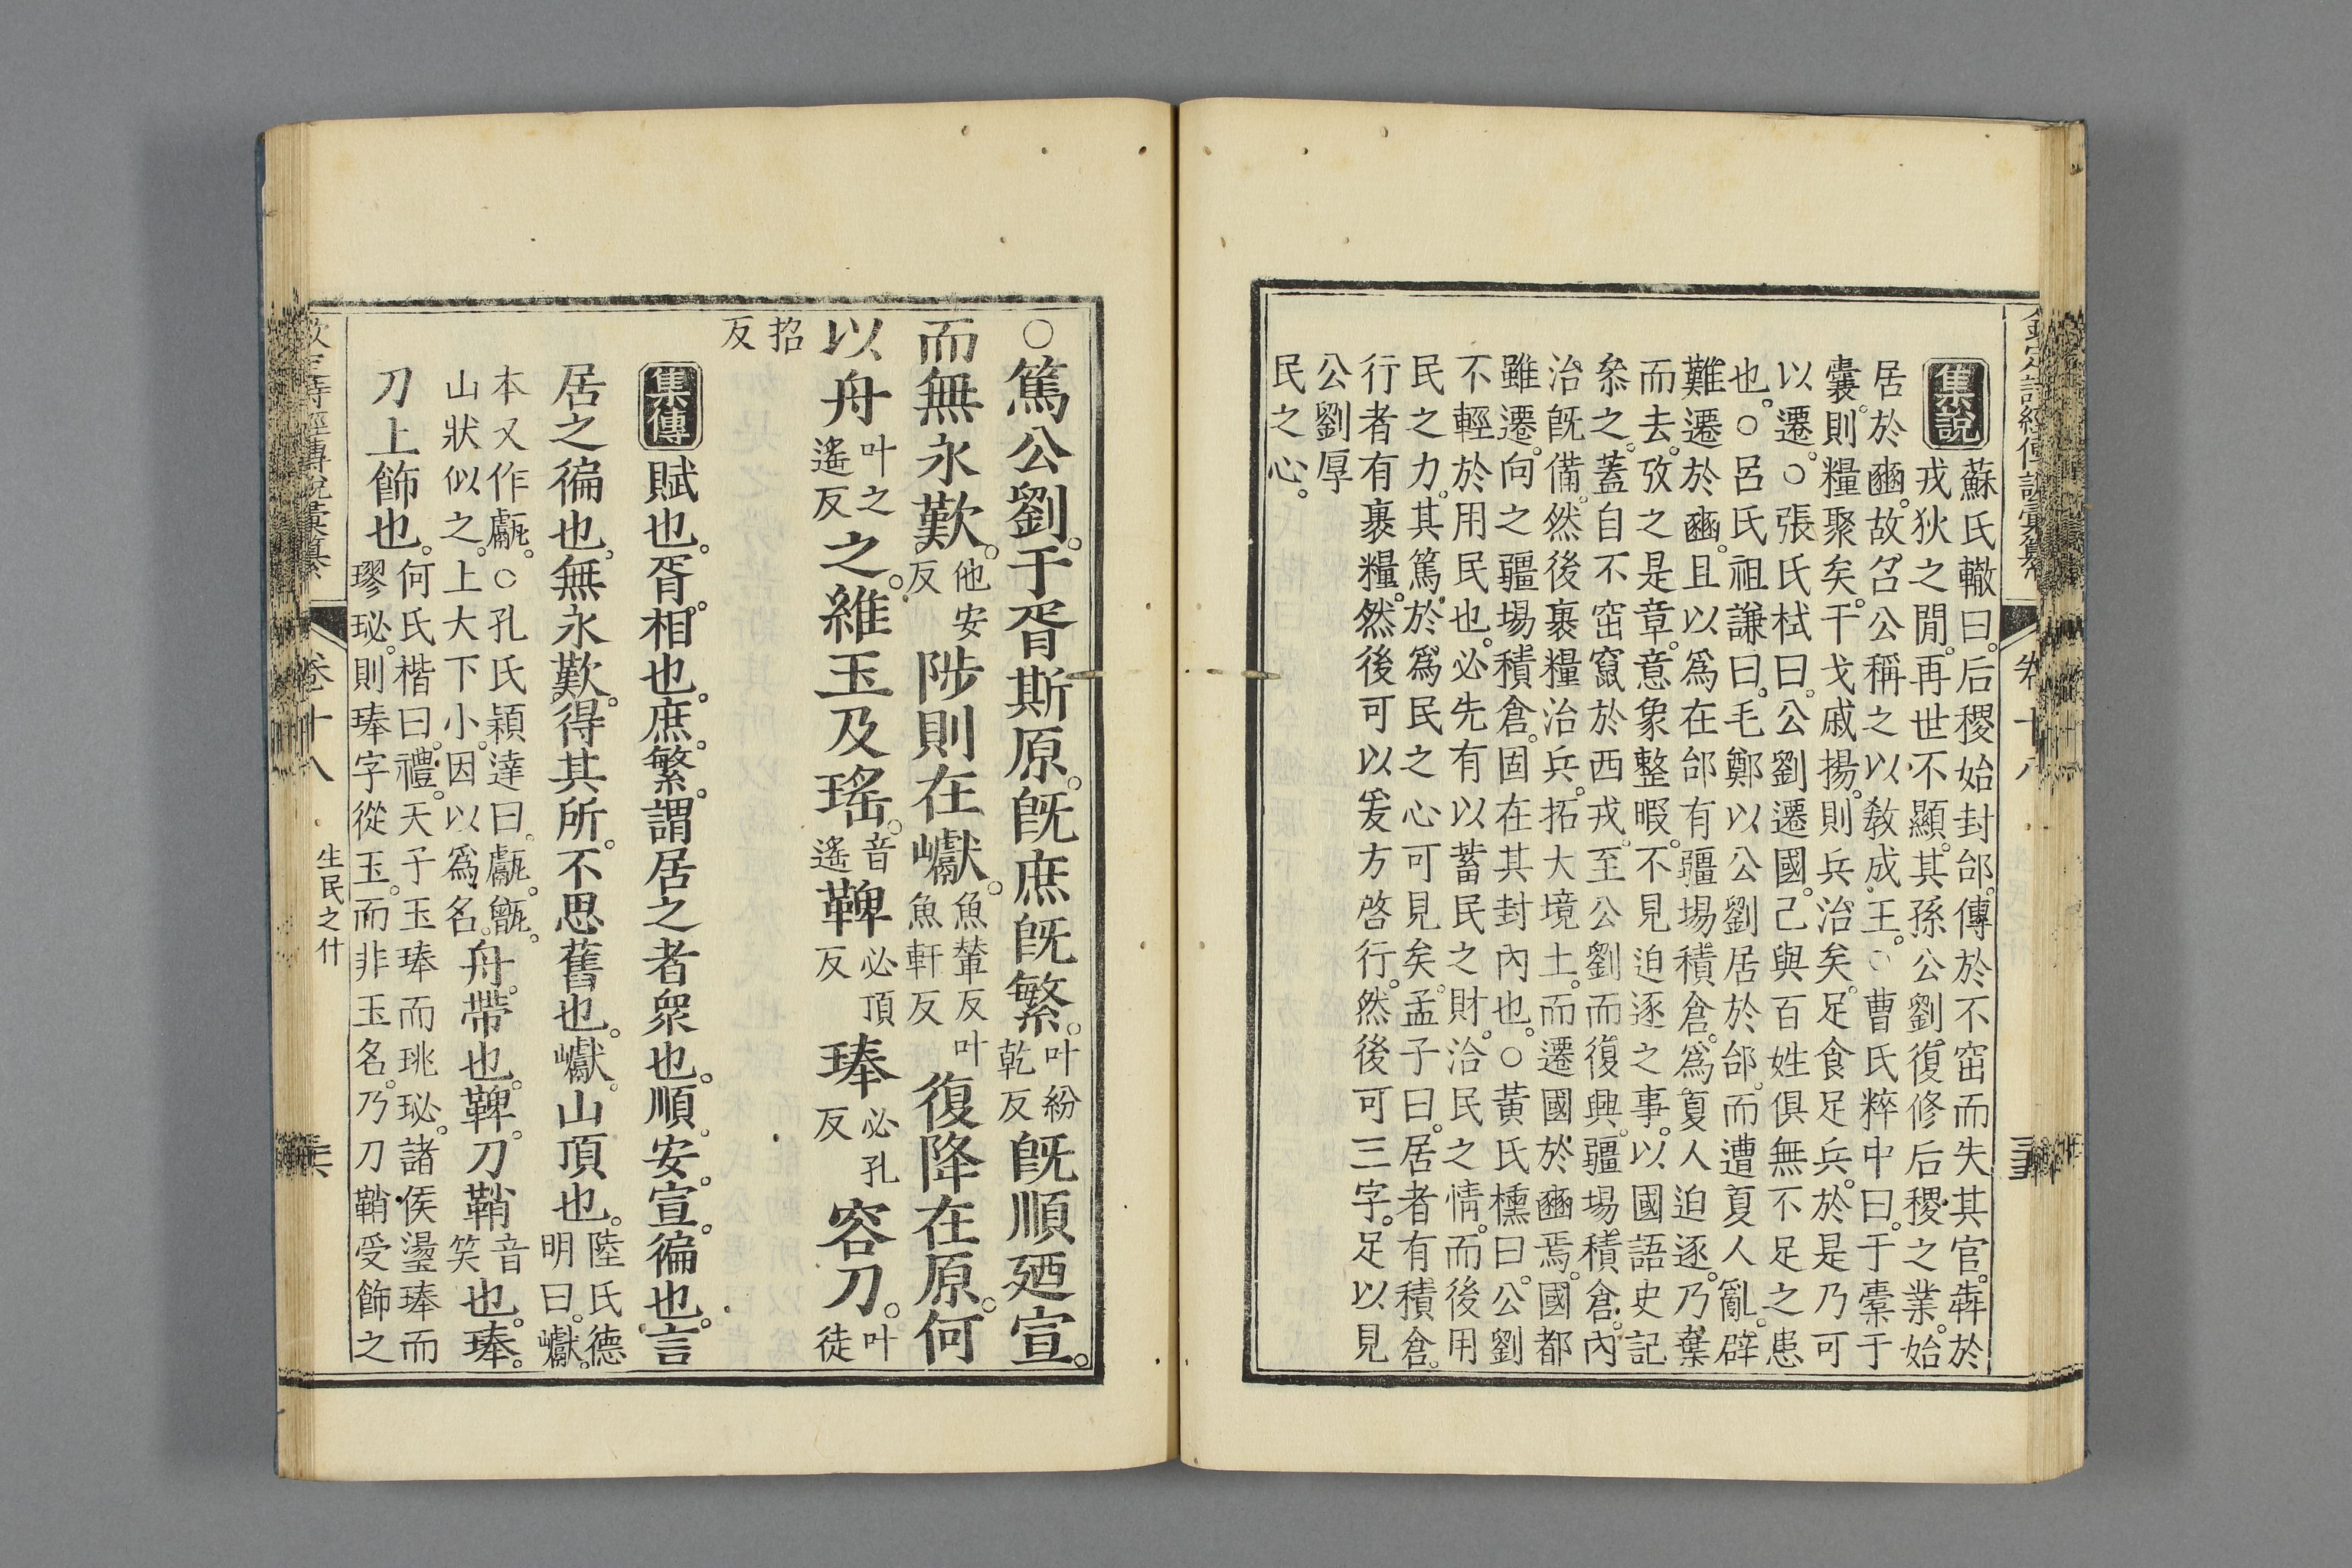 集說
蘇氏轍曰。后稷始封邰。傳於不窋而失其官。犇於
戎狄之閒。再世不顯。其孫公劉。復修后稷之業。始
居於豳。故召公稱之以敎成王。○曹氏粹中曰。于橐于
囊。則糧聚矣。干戈戚揚。則兵治矣。足食足兵。於是乃可
以遷。○張氏栻曰。公劉遷國。己與百姓俱無不足之患
也。○呂氏祖謙曰。毛鄭以公劉居於邰。而遭夏人亂。辟
難遷於豳。且以爲在邰有疆場積倉。爲夏人迫逐。乃棄
而去。攷之是章。意象整暇。不見迫逐之事。以國語史記
叅之。蓋自不窋竄於西戎。至公劉而復興。疆場積倉。內
治旣備。然後裹糧治兵。拓大境土。而遷國於豳焉。國都
雖遷。向之疆場積倉。固在其封內也。○黃氏櫄曰。公劉
不輕於用民也。必先有以蓄民之財。洽民之情。而後用
民之力。其篤於爲民之心可見矣。孟子曰。居者有積倉。
行者有裹糧。然後可以爰方啓行。然後可三字。足以見
公劉厚
民之心。
○篤公劉。于胥斯原。旣庶旣繁。叶紛乾反旣順廼宣。
而無永歎。他安反陟則在巘。魚輦反叶魚軒反復降在原。何
以舟叶之遙反之。維玉及瑤。音遙鞞必頂反琫必孔反容刀。叶徒
招反
集傳
賦也。胥。相也。庶繁。謂居之者衆也。順。安。宣。徧也。言
居之徧也。無永歎。得其所。不思舊也。巘。山頂也。陸氏德明曰。巘。
本又作甗。○孔氏穎達曰。甗。甑。山狀似之。上大下小。因以爲名。舟。帶也。鞞。刀鞘音笑也。琫。
刀上飾也。何氏楷曰。禮。天子玉琫而珧珌。諸侯璗琫而璆珌。則琫字從玉。而非玉名。乃刀鞘受飾之
卷十八
生民之什